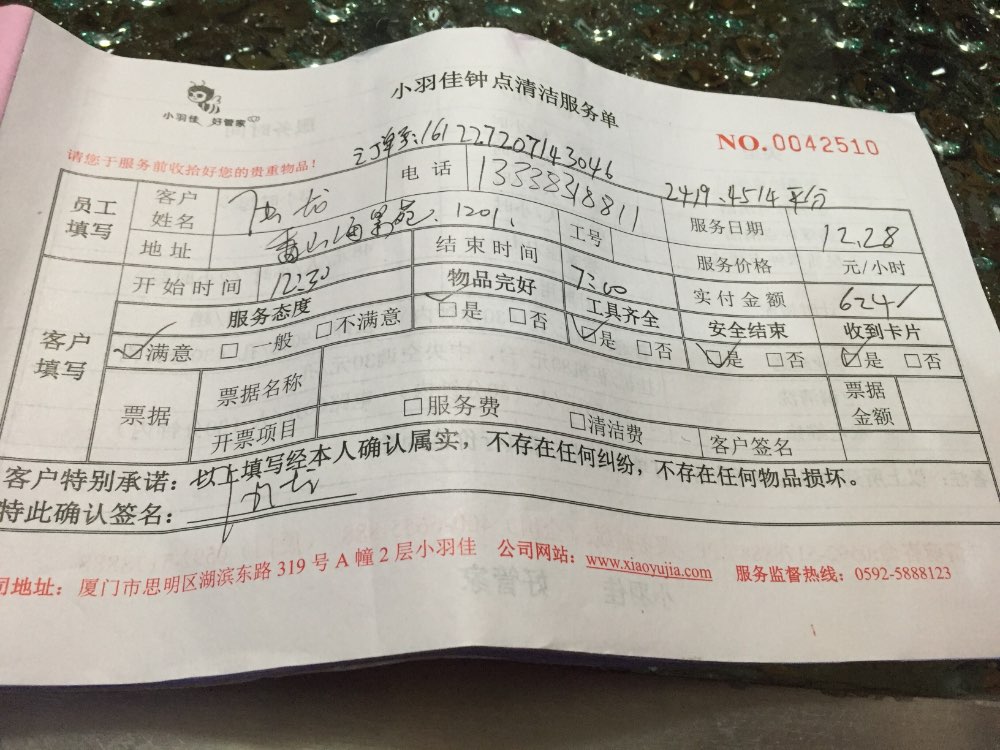 小羽佳 好管家
小羽佳钟点清洁服务单
NO.0042510
请您于服务前收拾好您的贵重物品！
订单号:161227207143046
2419.4514
员工填写 客户姓名 龙 电话 13338318811 服务日期 12.28
地址 香山 1201 工号 服务价格 元/小时
开始时间 12:30 结束时间 7:00 实付金额 624
客户填写 服务态度 物品完好 工具齐全 安全结束 收到卡片
☑满意 □一般 □不满意 ☑是 □否 ☑是 □否 ☑是 □否 ☑是 □否
票据 票据名称 票据金额
开票项目 □服务费 □清洁费 客户签名
客户特别承诺：以上填写经本人确认属实，不存在任何纠纷，不存在任何物品损坏。
特此确认签名：
司地址：厦门市思明区湖滨东路 319 号 A 幢 2 层小羽佳 公司网站：www.xiaoyujia.com 服务监督热线：0592-5888123